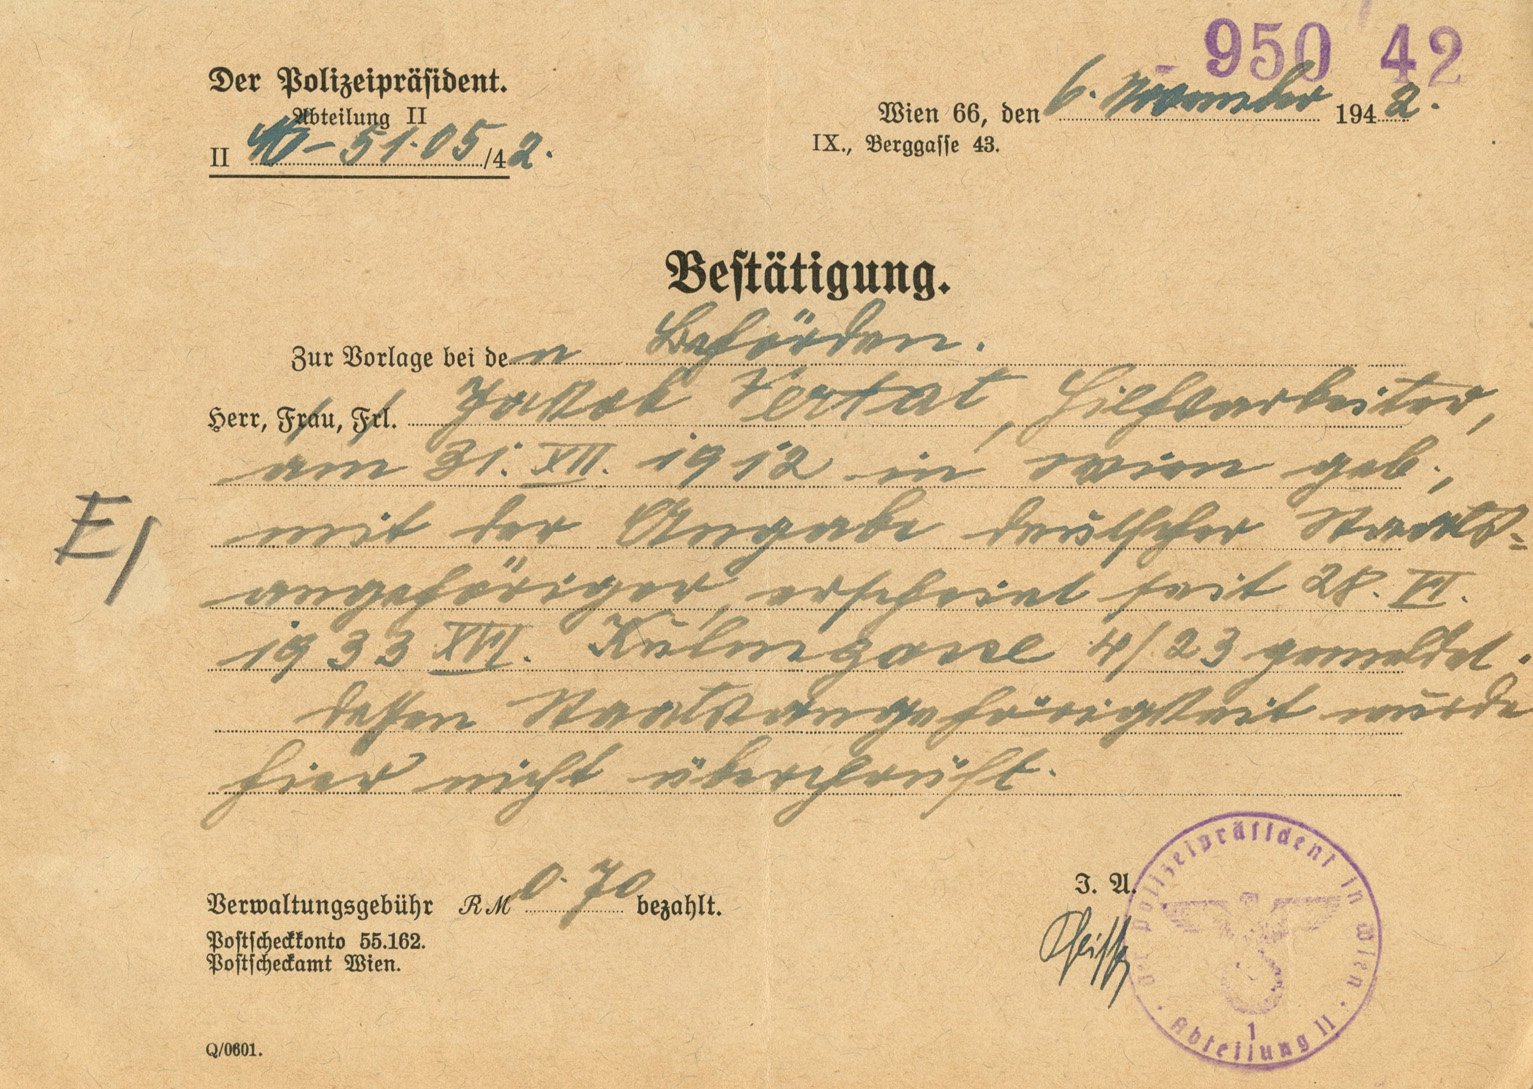 950 42
Der Polizeipräsident.
Abteilung II
II 40-51.05/42.
Wien 66, den 6. November 1942.
IX., Berggasse 43.
Bestätigung.
Zur Vorlage bei den Behörden.
Herr, Frau, Frl. Jakob Vertat, Hilfsarbeiter,
am 31. XII. 1912 in Wien geb.,
mit der Angabe deutscher Staats=
angehöriger, erscheint seit 28. VI.
1933 XVI. Kulmgasse 4/23 gemeldet.
dessen Staatsangehörigkeit wurde
hier nicht überprüft.
E/
Verwaltungsgebühr RM 0.70 bezahlt.
Postscheckkonto 55.162.
Postscheckamt Wien.
J. A.
Der Polizeipräsident in Wien
1
Abteilung II
Q/0601.